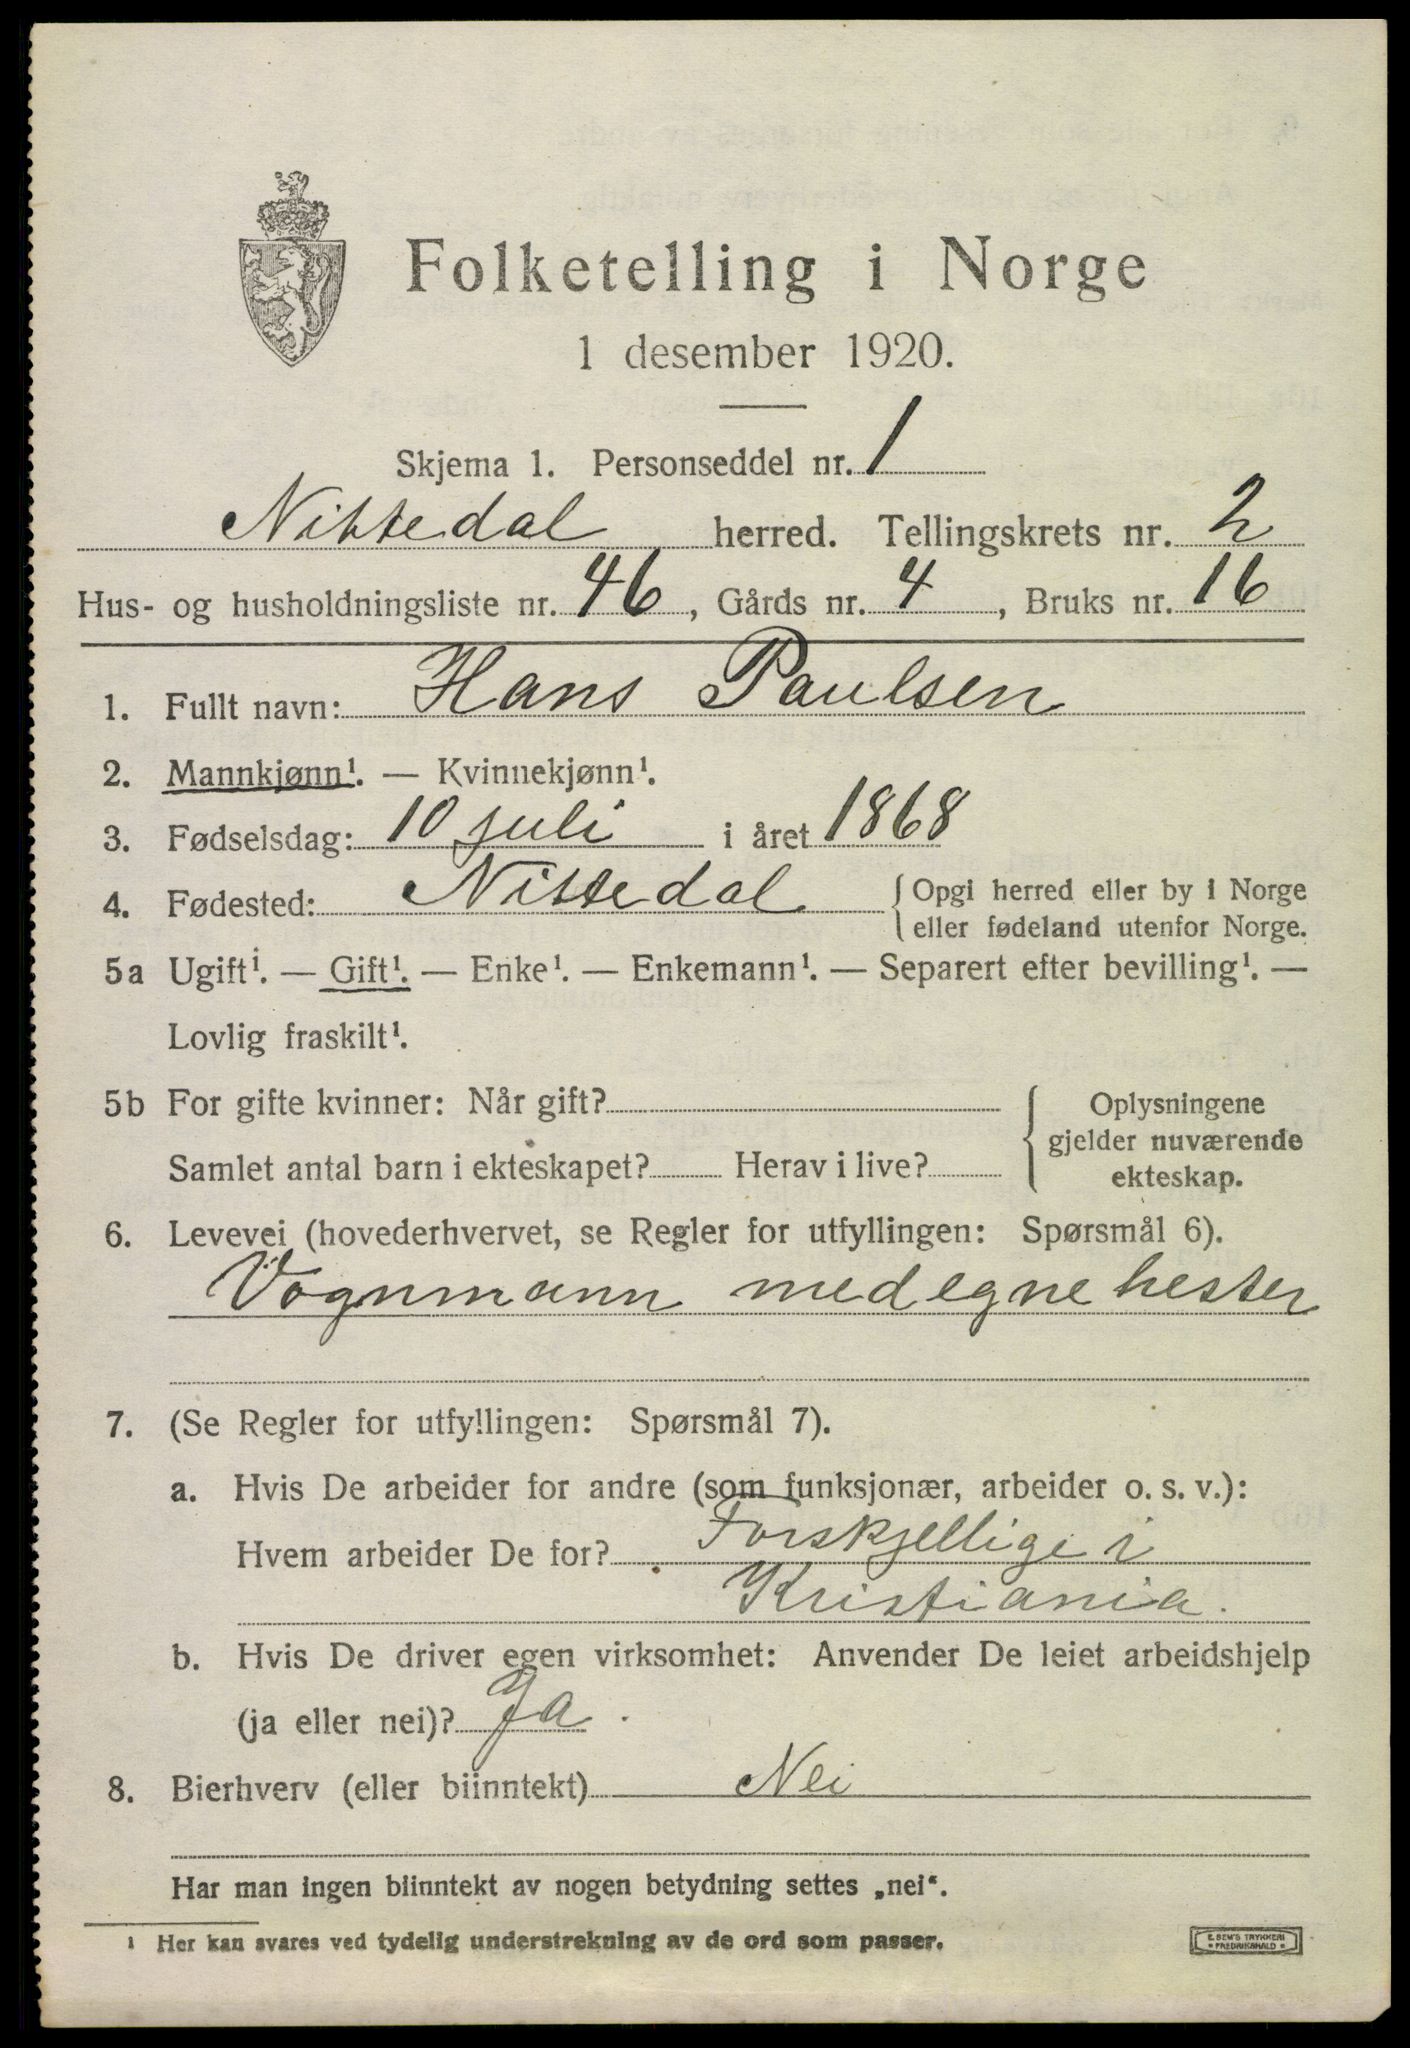 Folketelling i Norge
1 desember 1920.
Skjema 1. Personseddel nr. 1
Nittedal herred. Tellingskrets nr. 2
Hus- og husholdningsliste nr. 46, Gårds nr. 4, Bruks nr. 16
1. Fullt navn: Hans Paulsen
2. Mannkjønn¹. — Kvinnekjønn¹.
3. Fødselsdag: 10 juli i året 1868
4. Fødested: Nittedal { Opgi herred eller by i Norge
eller fødeland utenfor Norge.
5a Ugift¹. — Gift¹. — Enke¹. — Enkemann¹. — Separert efter bevilling¹. —
Lovlig fraskilt¹.
5b For gifte kvinner: Når gift?
Samlet antal barn i ekteskapet? Herav i live?
{ Oplysningene
gjelder nuværende
ekteskap.
6. Levevei (hovederhvervet, se Regler for utfyllingen: Spørsmål 6).
Vognmann med egne hester
7. (Se Regler for utfyllingen: Spørsmål 7).
a. Hvis De arbeider for andre (som funksjonær, arbeider o. s. v.):
Hvem arbeider De for? Forskjellige i
Kristiania.
b. Hvis De driver egen virksomhet: Anvender De leiet arbeidshjelp
(ja eller nei)? Ja.
8. Bierhverv (eller biinntekt) Nei
Har man ingen biinntekt av nogen betydning settes „nei“.
¹ Her kan svares ved tydelig understrekning av de ord som passer.
E. SEM'S TRYKKERI
FREDRIKSHALD